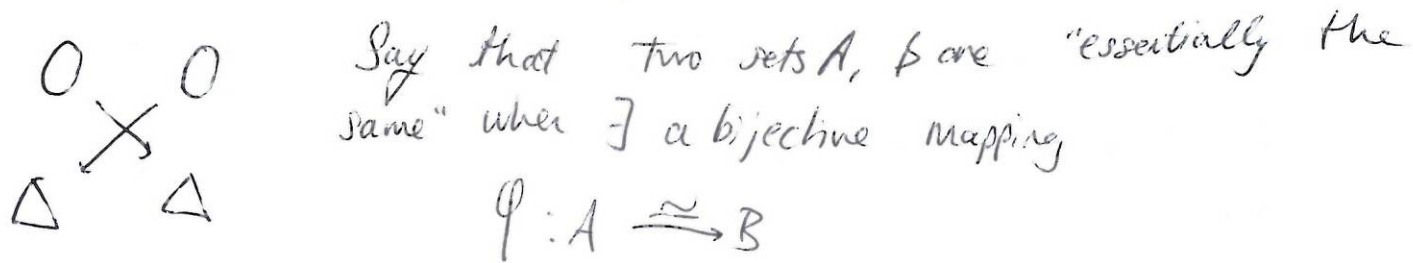 Say that two sets A, B are "essentially the
same" when ∃ a bijective mapping
φ : A ≅→ B